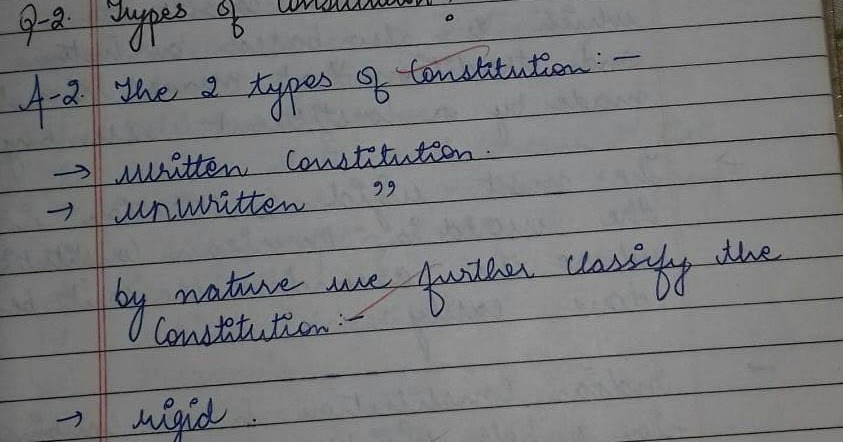 Q-2. Types of Constitution.
A-2. The 2 types of Constitution:-
→ written Constitution.
→ unwritten ”
by nature we further classify the
Constitution:-
→ rigid.